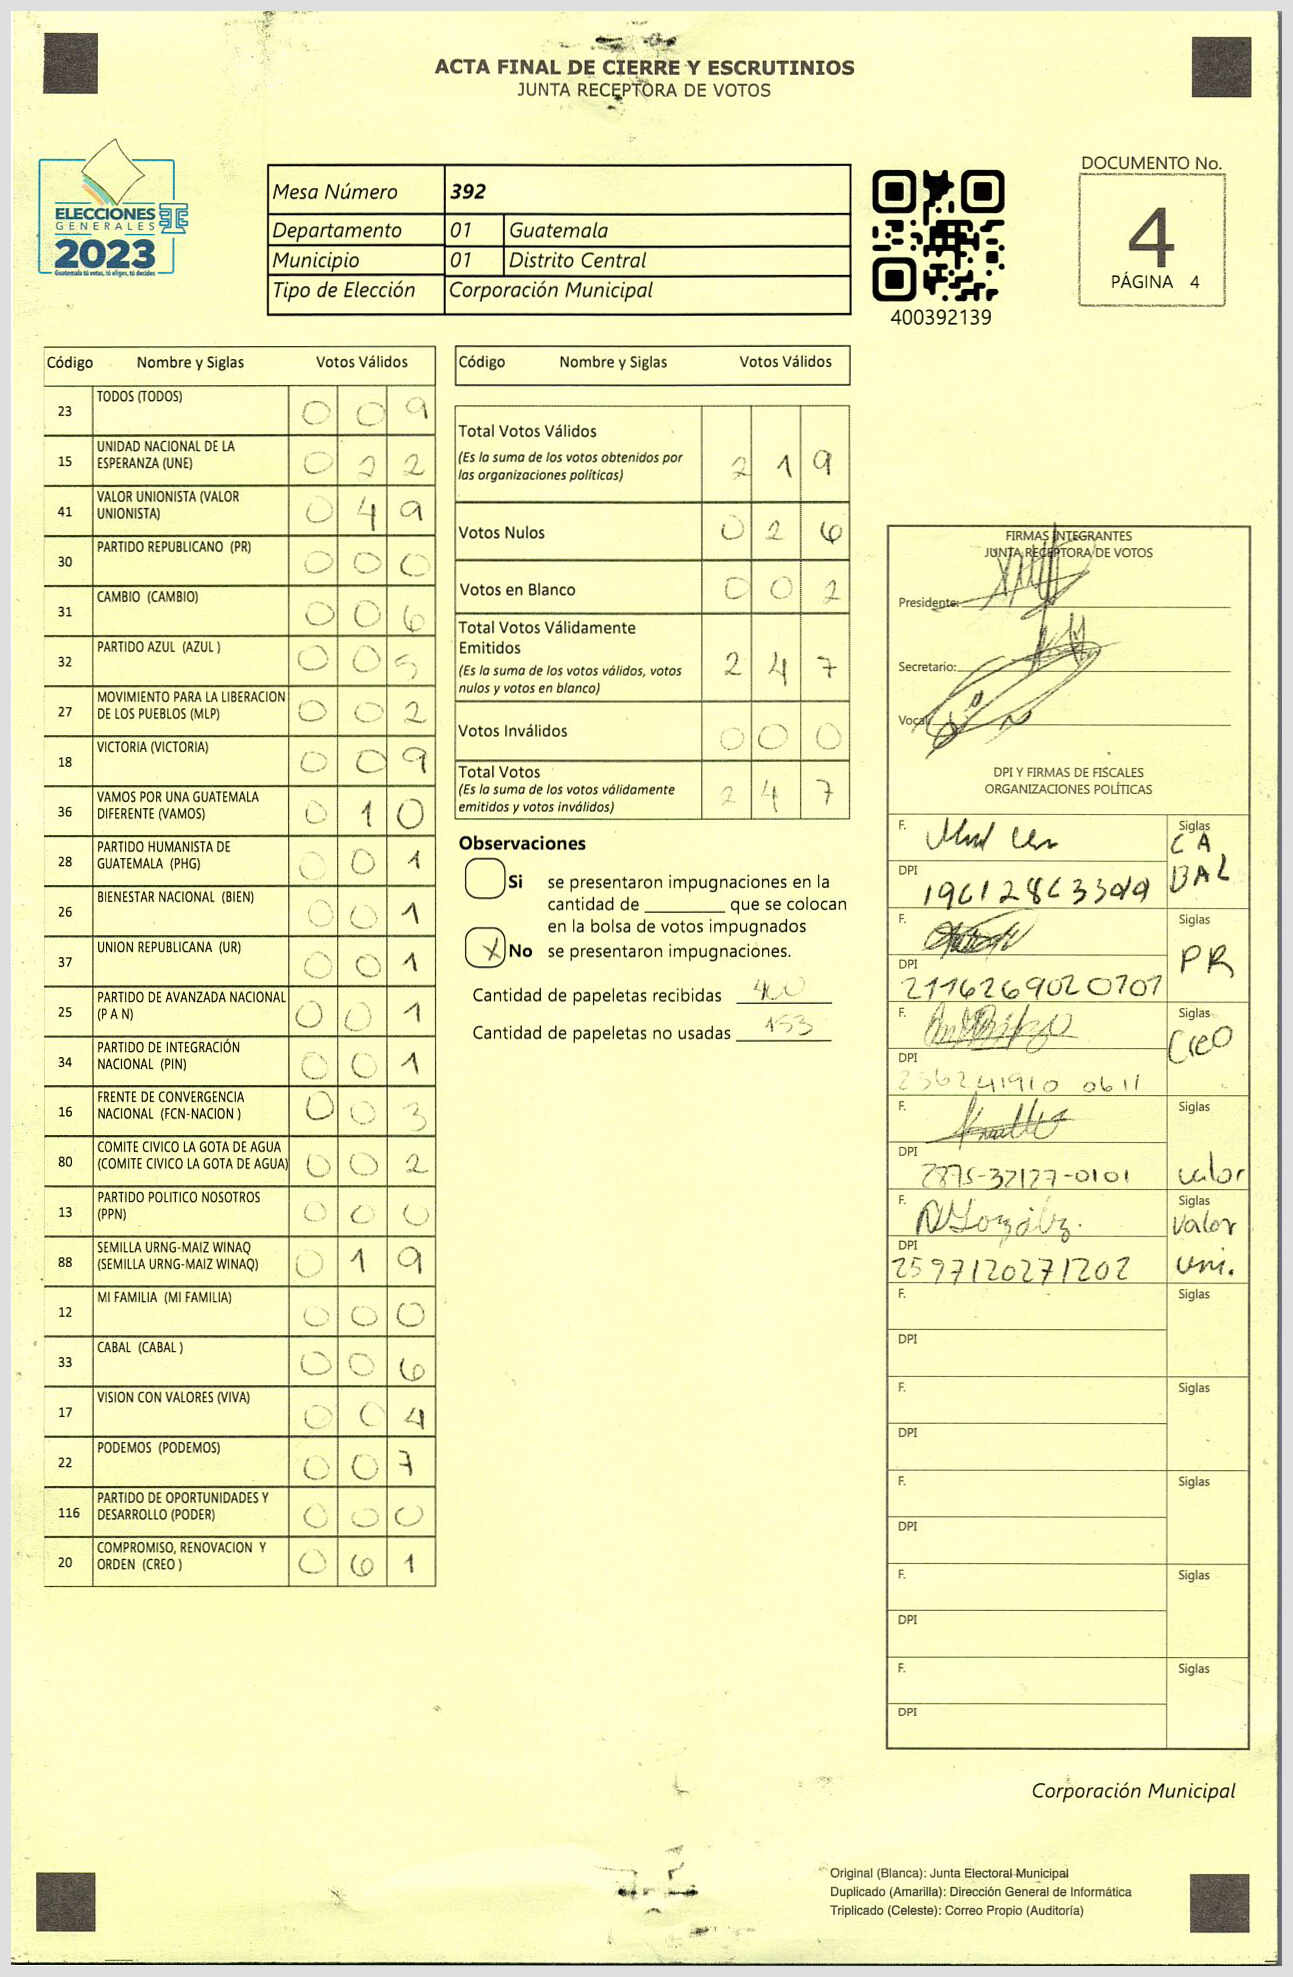 ACTA FINAL DE CIERRE Y ESCRUTINIOS
JUNTA RECEPTORA DE VOTOS
ELECCIONES
GENERALES
2023
Guatemala tú votas, tú eliges, tú decides
Mesa Número 392
Departamento 01 Guatemala
Municipio 01 Distrito Central
Tipo de Elección Corporación Municipal
400392139
DOCUMENTO No.
4
PÁGINA 4
Código Nombre y Siglas Votos Válidos
23 TODOS (TODOS) 0 0 9
15 UNIDAD NACIONAL DE LA ESPERANZA (UNE) 0 2 2
41 VALOR UNIONISTA (VALOR UNIONISTA) 0 4 9
30 PARTIDO REPUBLICANO (PR) 0 0 0
31 CAMBIO (CAMBIO) 0 0 6
32 PARTIDO AZUL (AZUL ) 0 0 5
27 MOVIMIENTO PARA LA LIBERACION DE LOS PUEBLOS (MLP) 0 0 2
18 VICTORIA (VICTORIA) 0 0 9
36 VAMOS POR UNA GUATEMALA DIFERENTE (VAMOS) 0 1 0
28 PARTIDO HUMANISTA DE GUATEMALA (PHG) 0 0 1
26 BIENESTAR NACIONAL (BIEN) 0 0 1
37 UNION REPUBLICANA (UR) 0 0 1
25 PARTIDO DE AVANZADA NACIONAL (P A N) 0 0 1
34 PARTIDO DE INTEGRACIÓN NACIONAL (PIN) 0 0 1
16 FRENTE DE CONVERGENCIA NACIONAL (FCN-NACION ) 0 0 3
80 COMITE CIVICO LA GOTA DE AGUA (COMITE CIVICO LA GOTA DE AGUA) 0 0 2
13 PARTIDO POLITICO NOSOTROS (PPN) 0 0 0
88 SEMILLA URNG-MAIZ WINAQ (SEMILLA URNG-MAIZ WINAQ) 0 1 9
12 MI FAMILIA (MI FAMILIA) 0 0 0
33 CABAL (CABAL ) 0 0 6
17 VISION CON VALORES (VIVA) 0 0 4
22 PODEMOS (PODEMOS) 0 0 7
116 PARTIDO DE OPORTUNIDADES Y DESARROLLO (PODER) 0 0 0
20 COMPROMISO, RENOVACION Y ORDEN (CREO ) 0 6 1
Código Nombre y Siglas Votos Válidos
Total Votos Válidos 2 1 9
(Es la suma de los votos obtenidos por
las organizaciones políticas)
Votos Nulos 0 2 6
Votos en Blanco 0 0 2
Total Votos Válidamente
Emitidos 2 4 7
(Es la suma de los votos válidos, votos
nulos y votos en blanco)
Votos Inválidos 0 0 0
Total Votos 2 4 7
(Es la suma de los votos válidamente
emitidos y votos inválidos)
Observaciones
Si se presentaron impugnaciones en la
cantidad de ________ que se colocan
en la bolsa de votos impugnados
X No se presentaron impugnaciones.
Cantidad de papeletas recibidas 400
Cantidad de papeletas no usadas 153
FIRMAS INTEGRANTES
JUNTA RECEPTORA DE VOTOS
Presidente:
Secretario:
Vocal:
DPI Y FIRMAS DE FISCALES
ORGANIZACIONES POLÍTICAS
F. Siglas CA
DPI BAL
F. Siglas PR
DPI 2116269020701
F. Siglas CreO
DPI 256241910 0611
F. Siglas valor
DPI 2875-32127-0101
F. Siglas valor
DPI 2597120271202 uni.
F. Siglas
DPI
F. Siglas
DPI
F. Siglas
DPI
F. Siglas
DPI
F. Siglas
DPI
Corporación Municipal
Original (Blanca): Junta Electoral Municipal
Duplicado (Amarilla): Dirección General de Informática
Triplicado (Celeste): Correo Propio (Auditoría)